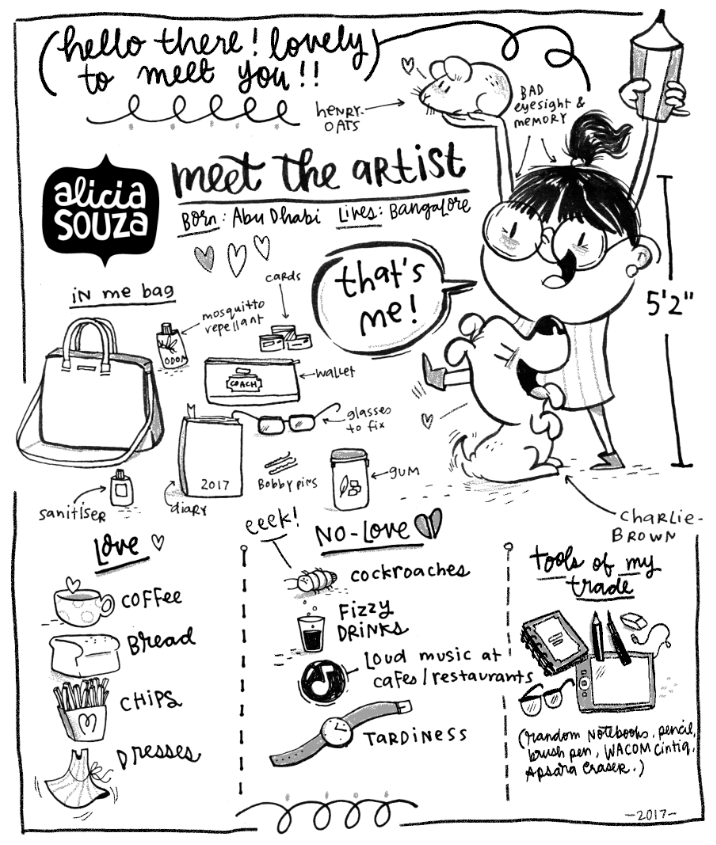 (hello there! lovely)
to meet you!!
HENRY-
OATS
BAD
eyesight &
MEMORY
alicia
SOUZA
meet the artist
Born: Abu Dhabi Lives: Bangalore
that's
me!
5'2"
iN me bag
mosquitto
repellant
ODOM
cards
COACH
wallet
glasses
to fix
2017
Bobby pins
gum
sanitiser
diary
CHARLIE-
BROWN
Love
COFFEE
Bread
CHIPS
Dresses
eeek!
NO-LOVE
cockroaches
Fizzy
DRINKS
Loud music at
cafes/restaurants
TARDINESS
tools of my
trade
(random Notebooks, pencil,
brush pen, WACOM Cintiq,
Apsara Eraser.)
-2017-